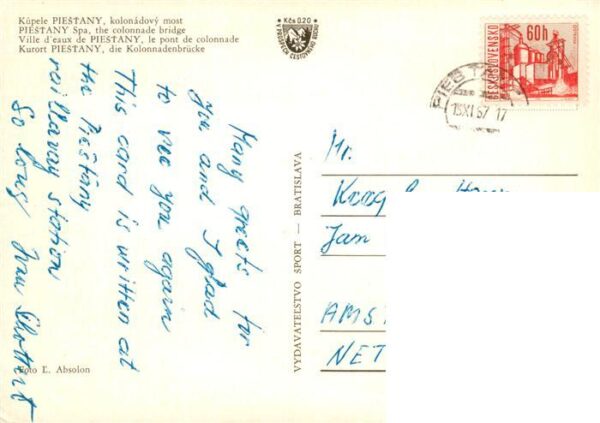 Kúpele PIEŠŤANY, kolonádový most
PIEŠŤANY Spa, the colonnade bridge
Ville d'eaux de PIEŠŤANY, le pont de colonnade
Kurort PIEŠŤANY, die Kolonnadenbrücke
Kčs 0,20
ČESKOSLOVENSKO
60h
15.XI.67.17
Many greets for
you and I glad
to see you again
This card is written at
the Piešťany
reillavay station
So long Ivan
Mr.
Jam
AMS
NET
VYDAVATEĽSTVO SPORT — BRATISLAVA
Foto Ľ. Absolon